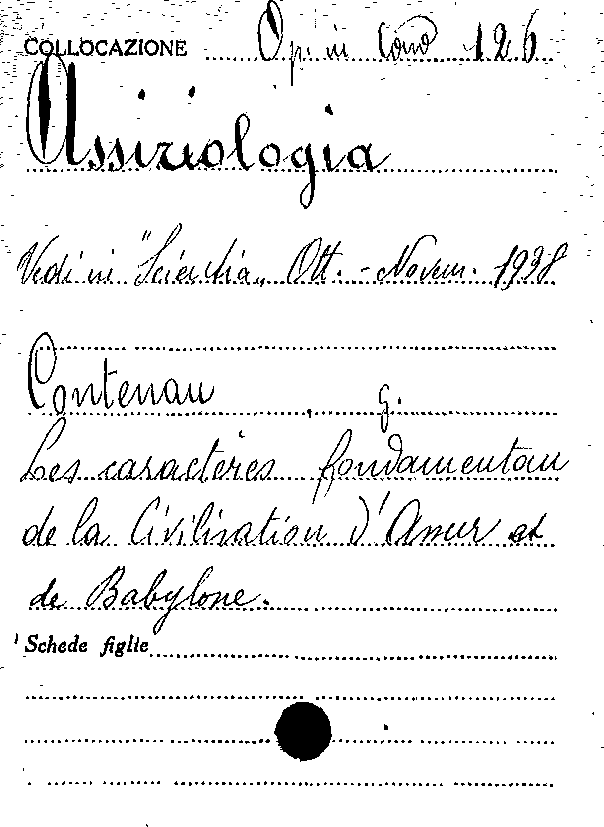 COLLOCAZIONE Op. in Cons 126
Assiriologia
Vedi in "Scientia" Ott. - Novem. 1938
Contenau, G.
Les caractères fondamentau
de la Civilisation d'Assur et
de Babylone.
Schede figlie